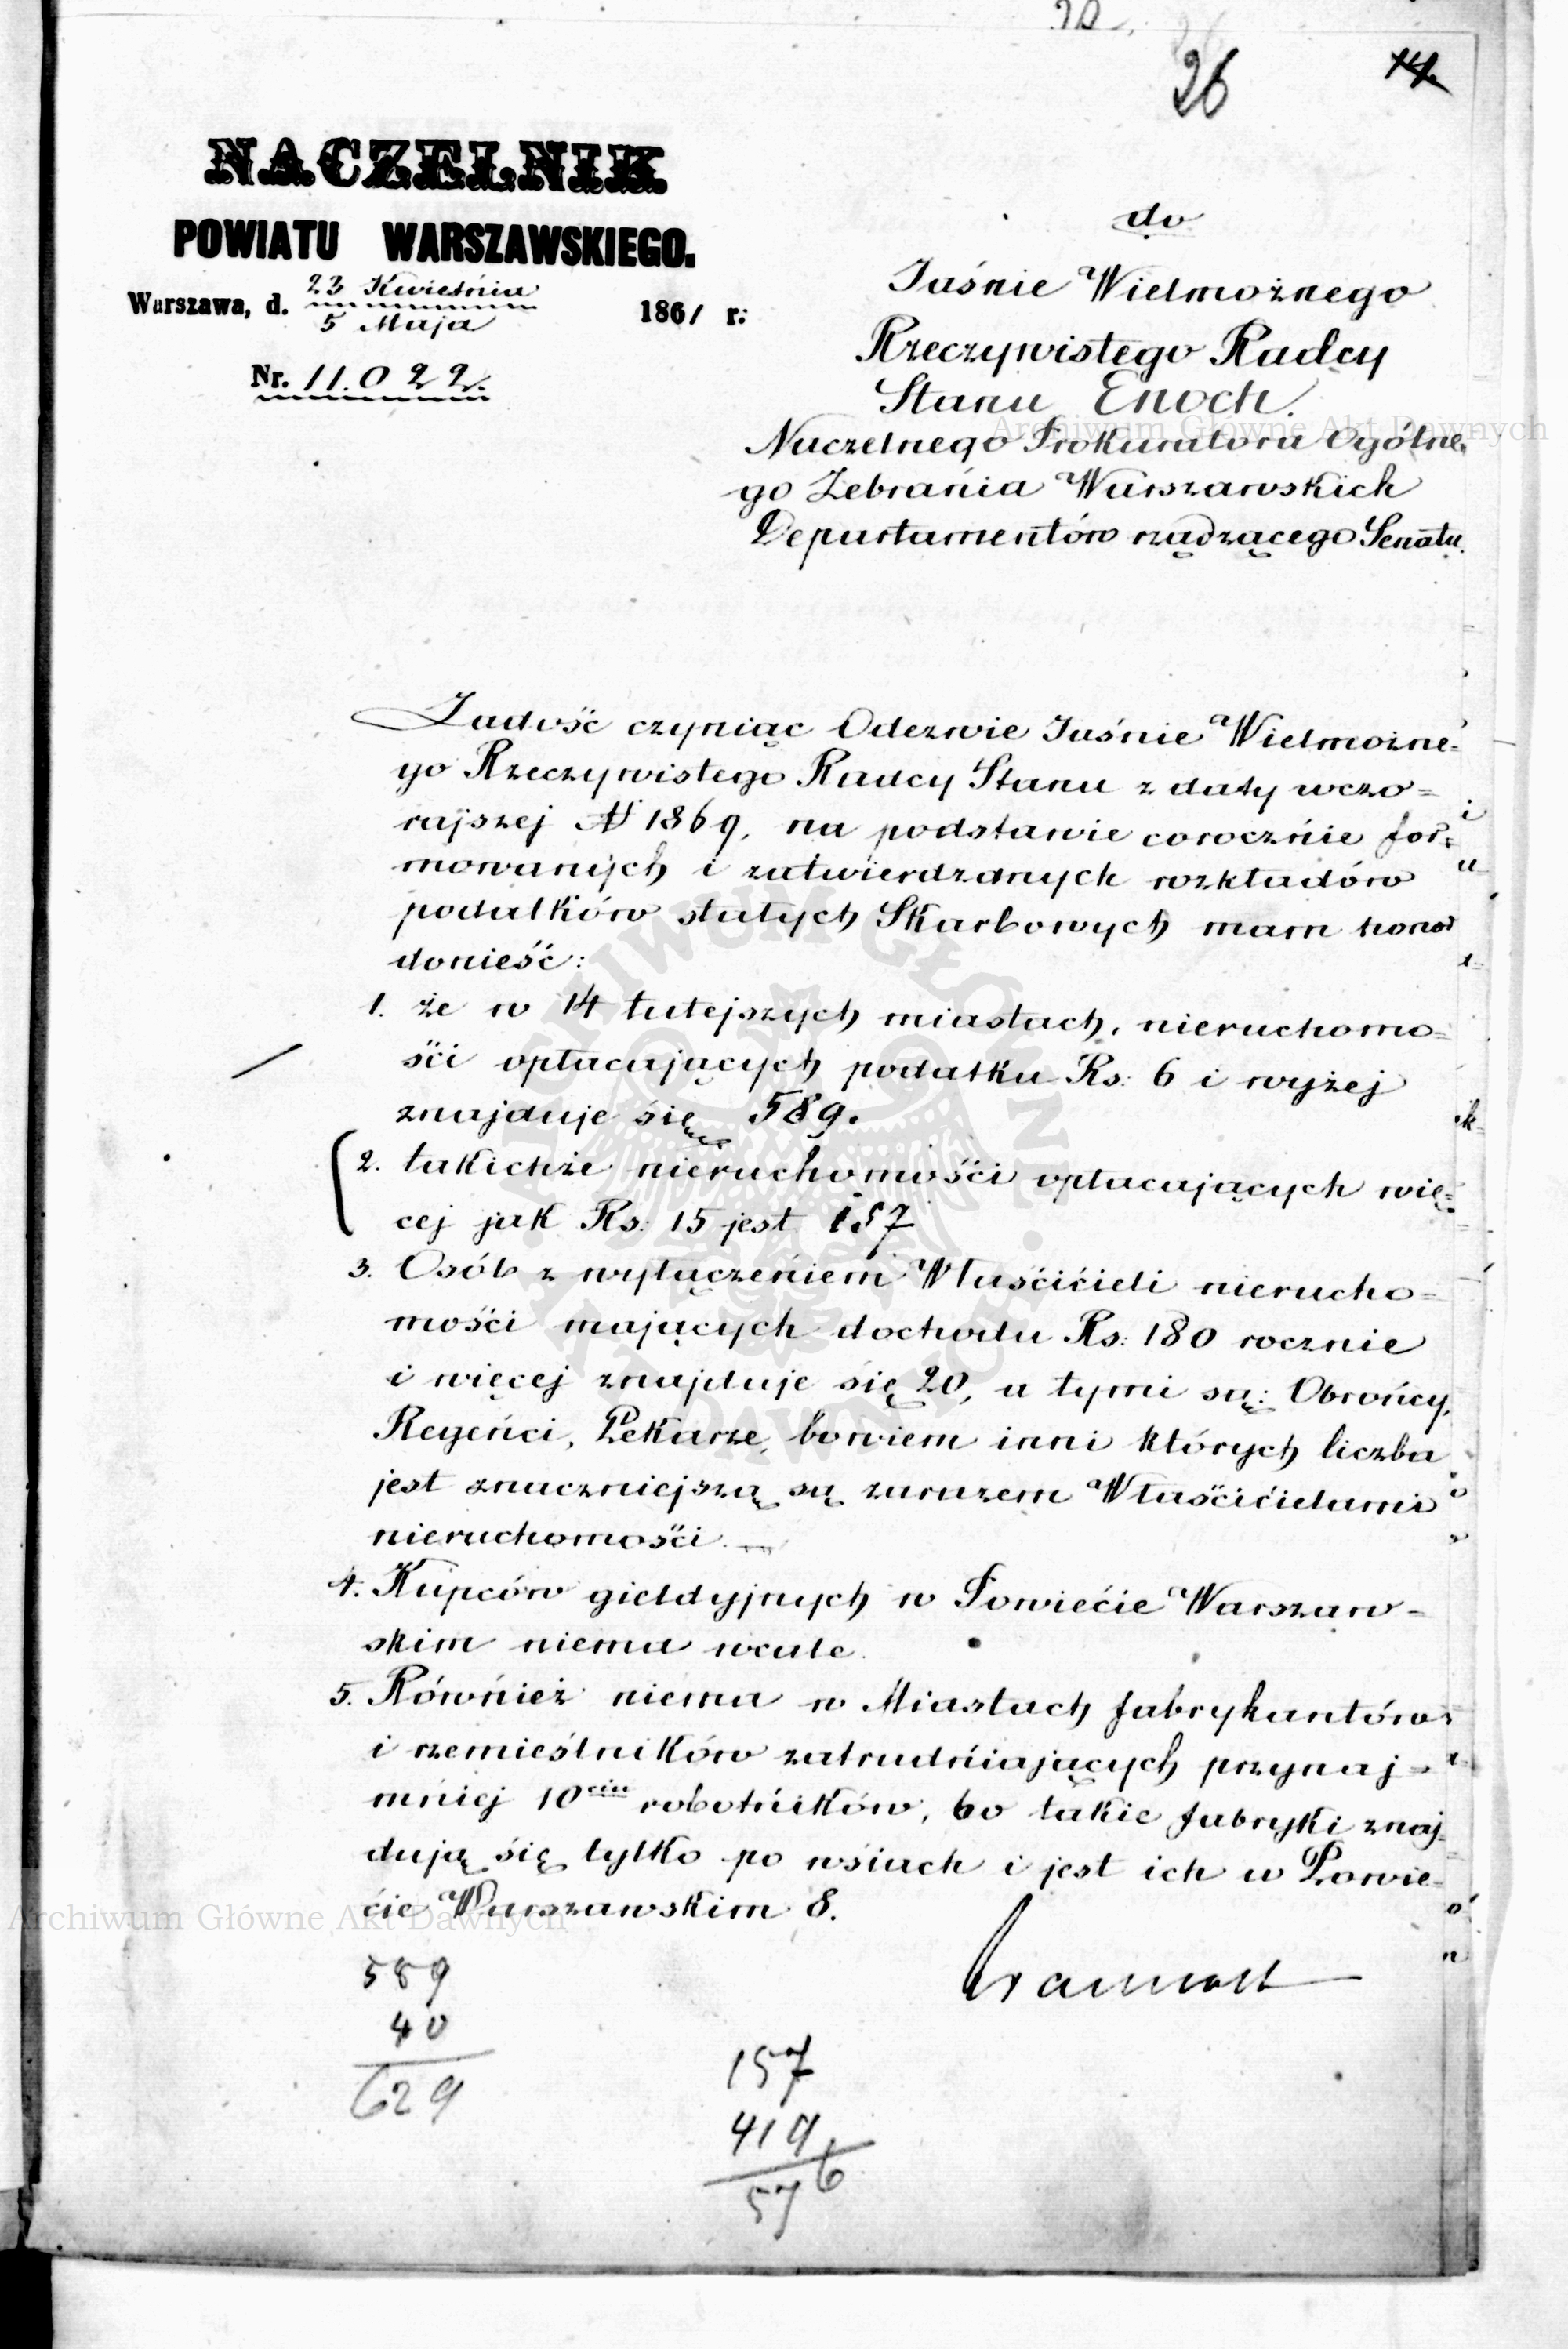 26
14.
NACZELNIK
POWIATU WARSZAWSKIEGO.
Warszawa, d. 23 Kwietnia
5 Maja
1861 r:
Nr. 11.022.
do
Jaśnie Wielmożnego
Rzeczywistego Radcy
Stanu Enoch.
Naczelnego Prokuratora Ogólne-
go Zebrania Warszawskich
Departamentów rządzącego Senatu.
Zadość czyniąc Odezwie Jaśnie Wielmożne-
go Rzeczywistego Radcy Stanu z daty wczo=
rajszej N 1869, na podstawie corocznie for-
mowanych i zatwierdzanych rozkładów
podatków stałych Skarbowych mam honor
donieść:
1. że w 14 tutejszych miastach, nieruchomo=
ści opłacających podatku Rs: 6 i wyżej
znajduje się 589.
2. takichże nieruchomości opłacających wię-
cej jak Rs: 15 jest 157
3. Osób z wyłączeniem Właścicieli nierucho=
mości mających dochodu Rs: 180 rocznie
i więcej znajduje się 20, a tymi są: Obrońcy,
Regenci, Lekarze, bowiem inni których liczba
jest znaczniejszą są zarazem Właścicielami
nieruchomości.
4. Kupców giełdyjnych w Powiecie Warszaw-
skim niema wcale.
5. Również niema w Miastach fabrykantów
i rzemieślników zatrudniających przynaj=
mniej 10ciu robotników, bo takie fabryki znaj-
dują się tylko po wsiach i jest ich w Powie-
cie Warszawskim 8.
589
40
629
157
419
576
Archiwum Główne Akt Dawnych
Archiwum Główne Akt Dawnych